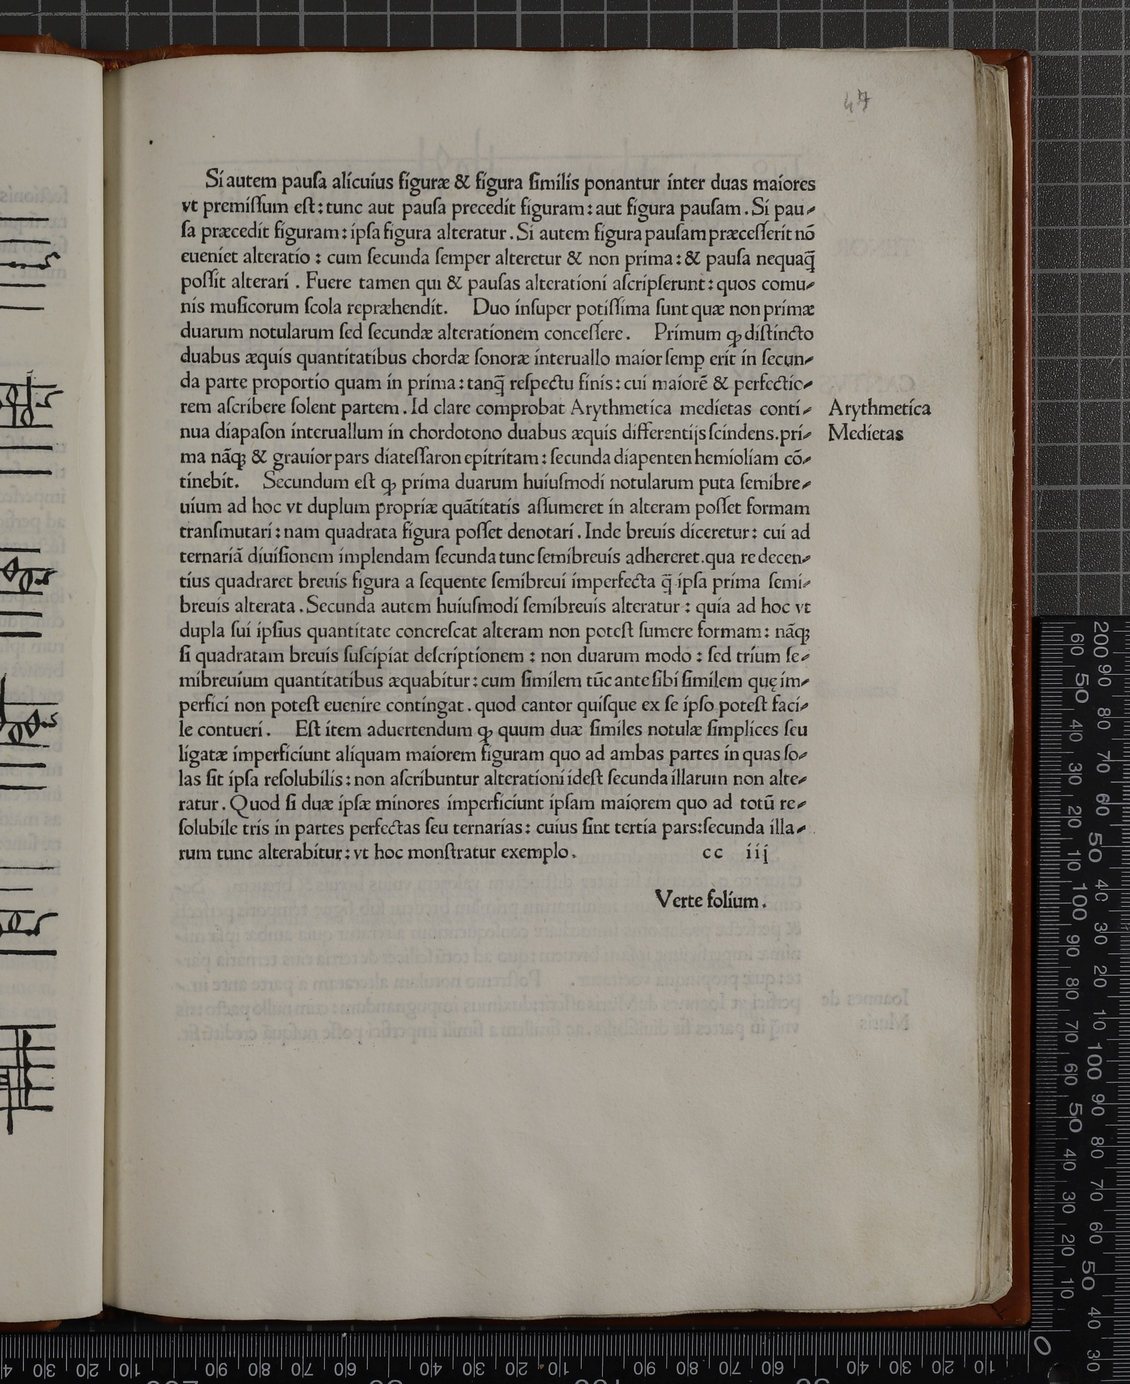 47
Si autem pauſa alicuius figuræ & figura ſimilis ponantur inter duas maiores
vt premiſſum eſt: tunc aut pauſa precedit figuram: aut figura pauſam. Si pau⸗
ſa præcedit figuram: ipſa figura alteratur. Si autem figura pauſam præceſſerit nō
eueniet alteratio: cum ſecunda ſemper alteretur & non prima: & pauſa nequaq̄
poſſit alterari. Fuere tamen qui & pauſas alterationi aſcripſerunt: quos comu⸗
nis muſicorum ſcola repræhendit. Duo inſuper potiſſima ſunt quæ non primæ
duarum notularum ſed ſecundæ alterationem conceſſere. Primum ꝙ diſtincto
duabus æquis quantitatibus chordæ ſonoræ interuallo maior ſemꝑ erit in ſecun⸗
da parte proportio quam in prima: tanq̄ reſpectu finis: cui maiorē & perfectio⸗
rem aſcribere ſolent partem. Id clare comprobat Arythmetica medietas conti⸗
Arythmetica
nua diapaſon interuallum in chordotono duabus æquis differentijs ſcindens. pri⸗
Medietas
ma nāꝗ & grauior pars diateſſaron epitritam: ſecunda diapenten hemioliam cō⸗
tinebit. Secundum eſt ꝙ prima duarum huiuſmodi notularum puta ſemibre⸗
uium ad hoc vt duplum propriæ quātitatis aſſumeret in alteram poſſet formam
tranſmutari: nam quadrata figura poſſet denotari. Inde breuis diceretur: cui ad
ternariā diuiſionem implendam ſecunda tunc ſemibreuis adhereret. qua re decen⸗
tius quadraret breuis figura a ſequente ſemibreui imperfecta q̄ ipſa prima ſemi⸗
breuis alterata. Secunda autem huiuſmodi ſemibreuis alteratur: quia ad hoc vt
dupla ſui ipſius quantitate concreſcat alteram non poteſt ſumere formam: nāꝗ
ſi quadratam breuis ſuſcipiat deſcriptionem: non duarum modo: ſed trium ſe⸗
mibreuium quantitatibus æquabitur: cum ſimilem tūc ante ſibi ſimilem quę im⸗
perfici non poteſt euenire contingat. quod cantor quiſque ex ſe ipſo poteſt faci⸗
le contueri. Eſt item aduertendum ꝙ quum duæ ſimiles notulæ ſimplices ſeu
ligatæ imperficiunt aliquam maiorem figuram quo ad ambas partes in quas ſo⸗
las ſit ipſa reſolubilis: non aſcribuntur alterationi ideſt ſecunda illarum non alte⸗
ratur. Quod ſi duæ ipſæ minores imperficiunt ipſam maiorem quo ad totū re⸗
ſolubile tris in partes perfectas ſeu ternarias: cuius ſint tertia pars: ſecunda illa⸗
rum tunc alterabitur: vt hoc monſtratur exemplo. cc iij
Verte folium.